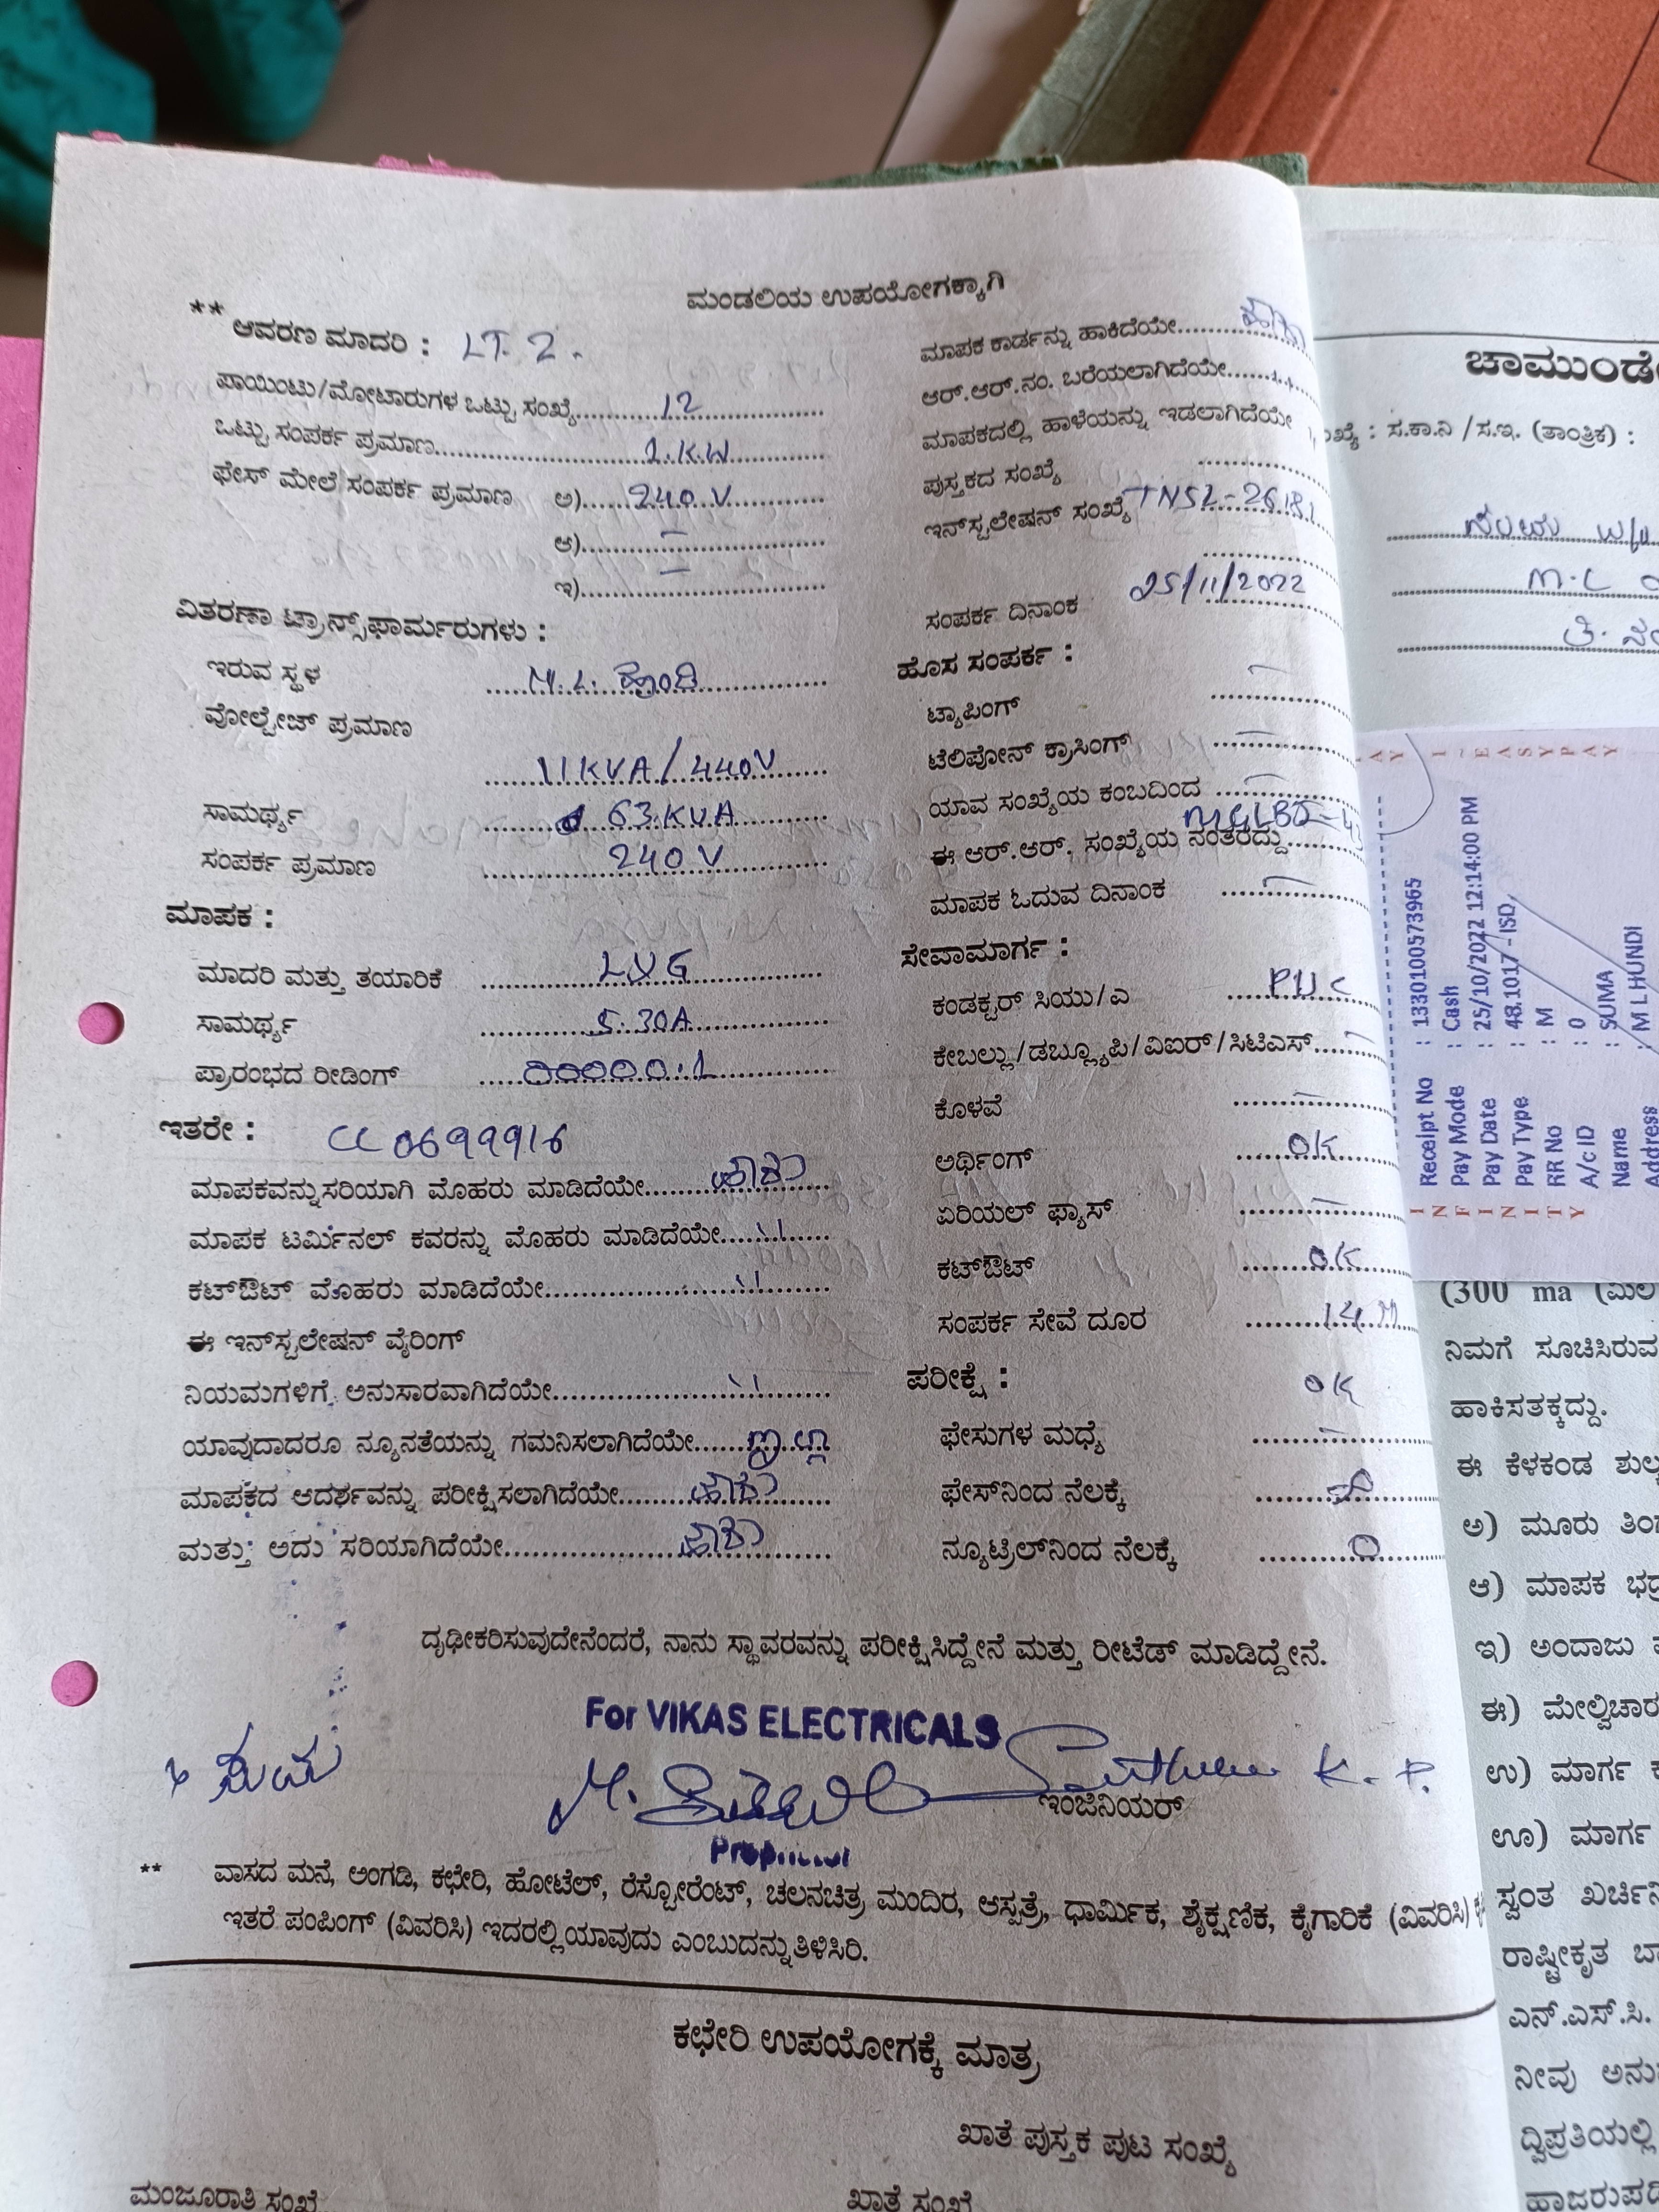 ಮಂಡಲಿಯ ಉಪಯೋಗಕ್ಕಾಗಿ
** ಆವರಣ ಮಾದರಿ : LT. 2.
ಪಾಯಿಂಟು/ಮೋಟಾರುಗಳ ಒಟ್ಟು ಸಂಖ್ಯೆ 12
ಒಟ್ಟು ಸಂಪರ್ಕ ಪ್ರಮಾಣ 1.KW
ಫೇಸ್ ಮೇಲೆ ಸಂಪರ್ಕ ಪ್ರಮಾಣ ಅ) 240 V
ಆ) —
ಇ) —
ವಿತರಣಾ ಟ್ರಾನ್ಸ್‌ಫಾರ್ಮರುಗಳು :
ಇರುವ ಸ್ಥಳ M.L. ಹುಂಡಿ
ವೋಲ್ಟೇಜ್ ಪ್ರಮಾಣ
11KVA/440V
ಸಾಮರ್ಥ್ಯ 63 KVA
ಸಂಪರ್ಕ ಪ್ರಮಾಣ 240 V
ಮಾಪಕ :
ಮಾದರಿ ಮತ್ತು ತಯಾರಿಕೆ L&G
ಸಾಮರ್ಥ್ಯ 5.30A
ಪ್ರಾರಂಭದ ರೀಡಿಂಗ್ 00000.1
ಇತರೇ :
ಮಾಪಕವನ್ನು ಸರಿಯಾಗಿ ಮೊಹರು ಮಾಡಿದೆಯೇ ಹೌದು
ಮಾಪಕ ಟರ್ಮಿನಲ್ ಕವರನ್ನು ಮೊಹರು ಮಾಡಿದೆಯೇ 11
ಕಟ್‌ಔಟ್ ಮೊಹರು ಮಾಡಿದೆಯೇ 11
ಈ ಇನ್‌ಸ್ಟಲೇಷನ್ ವೈರಿಂಗ್
ನಿಯಮಗಳಿಗೆ ಅನುಸಾರವಾಗಿದೆಯೇ 11
ಯಾವುದಾದರೂ ನ್ಯೂನತೆಯನ್ನು ಗಮನಿಸಲಾಗಿದೆಯೇ ಇಲ್ಲ
ಮಾಪಕದ ಆದರ್ಶವನ್ನು ಪರೀಕ್ಷಿಸಲಾಗಿದೆಯೇ ಹೌದು
ಮತ್ತು ಅದು ಸರಿಯಾಗಿದೆಯೇ ಹೌದು
ಮಾಪಕ ಕಾರ್ಡನ್ನು ಹಾಕಿದೆಯೇ ಹೌದು
ಆರ್.ಆರ್.ನಂ. ಬರೆಯಲಾಗಿದೆಯೇ
ಮಾಪಕದಲ್ಲಿ ಹಾಳೆಯನ್ನು ಇಡಲಾಗಿದೆಯೇ
ಪುಸ್ತಕದ ಸಂಖ್ಯೆ
ಇನ್‌ಸ್ಟಲೇಷನ್ ಸಂಖ್ಯೆ
ಸಂಪರ್ಕ ದಿನಾಂಕ 25/11/2022
ಹೊಸ ಸಂಪರ್ಕ :
ಟ್ಯಾಪಿಂಗ್ —
ಟೆಲಿಪೋನ್ ಕ್ರಾಸಿಂಗ್ —
ಯಾವ ಸಂಖ್ಯೆಯ ಕಂಬದಿಂದ —
ಈ ಆರ್.ಆರ್. ಸಂಖ್ಯೆಯ ನಂತರದ್ದು
ಮಾಪಕ ಓದುವ ದಿನಾಂಕ —
ಸೇವಾಮಾರ್ಗ :
ಕಂಡಕ್ಟರ್ ಸಿಯು/ಎ PVC
ಕೇಬಲ್ಲು/ಡಬ್ಲ್ಯೂಪಿ/ವಿಐರ್/ಸಿಟಿಎಸ್ —
ಕೊಳವೆ —
ಅರ್ಥಿಂಗ್ OK
ಏರಿಯಲ್ ಫ್ಯಾಸ್ —
ಕಟ್‌ಔಟ್ OK
ಸಂಪರ್ಕ ಸೇವೆ ದೂರ 14M
ಪರೀಕ್ಷೆ : OK
ಫೇಸುಗಳ ಮಧ್ಯೆ —
ಫೇಸ್‌ನಿಂದ ನೆಲಕ್ಕೆ
ನ್ಯೂಟ್ರಿಲ್‌ನಿಂದ ನೆಲಕ್ಕೆ 0
ದೃಢೀಕರಿಸುವುದೇನೆಂದರೆ, ನಾನು ಸ್ಥಾವರವನ್ನು ಪರೀಕ್ಷಿಸಿದ್ದೇನೆ ಮತ್ತು ರೀಟೆಡ್ ಮಾಡಿದ್ದೇನೆ.
For VIKAS ELECTRICALS
ಸುಮ
ಇಂಜಿನಿಯರ್
** ವಾಸದ ಮನೆ, ಅಂಗಡಿ, ಕಛೇರಿ, ಹೋಟೆಲ್, ರೆಸ್ಟೋರೆಂಟ್, ಚಲನಚಿತ್ರ ಮಂದಿರ, ಆಸ್ಪತ್ರೆ, ಧಾರ್ಮಿಕ, ಶೈಕ್ಷಣಿಕ, ಕೈಗಾರಿಕೆ (ವಿವರಿಸಿ)
ಇತರೆ ಪಂಪಿಂಗ್ (ವಿವರಿಸಿ) ಇದರಲ್ಲಿ ಯಾವುದು ಎಂಬುದನ್ನು ತಿಳಿಸಿರಿ.
ಕಛೇರಿ ಉಪಯೋಗಕ್ಕೆ ಮಾತ್ರ
ಖಾತೆ ಪುಸ್ತಕ ಪುಟ ಸಂಖ್ಯೆ
ಮಂಜೂರಾತಿ ಸಂಖ್ಯೆ
ಖಾತೆ ಸಂಖ್ಯೆ
ಚಾಮುಂಡೇ
: ಸ.ಕಾ.ನಿ /ಸ.ಇ. (ತಾಂತ್ರಿಕ) :
INFINITY
Receipt No : 1330100573965
Pay Mode : Cash
Pay Date : 25/10/2022 12:14:00 PM
Pay Type : 48.1017 - ISD
RR No : M
A/c ID : 0
Name : SUMA
Address : M L HUNDI
(300 ma
ನಿಮಗೆ ಸೂಚಿಸಿರುವ
ಹಾಕಿಸತಕ್ಕದ್ದು.
ಈ ಕೆಳಕಂಡ ಶುಲ್ಕ
ಅ) ಮೂರು
ಆ) ಮಾಪಕ
ಇ) ಅಂದಾಜು
ಈ) ಮೇಲ್ವಿಚಾರ
ಉ) ಮಾರ್ಗ
ಊ) ಮಾರ್ಗ
ಸ್ವಂತ
ರಾಷ್ಟ್ರೀಕೃತ
ಎನ್.ಎಸ್.ಸಿ.
ನೀವು
ದ್ವಿಪ್ರತಿಯಲ್ಲಿ